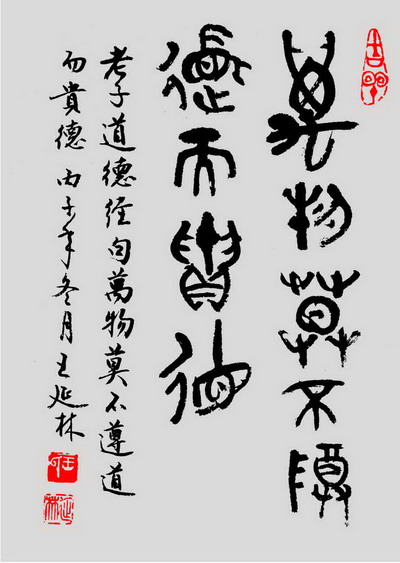 萬物莫不尊
德而貴道
老子道德经句萬物莫不遵道
而貴德 丙子年冬月王延林